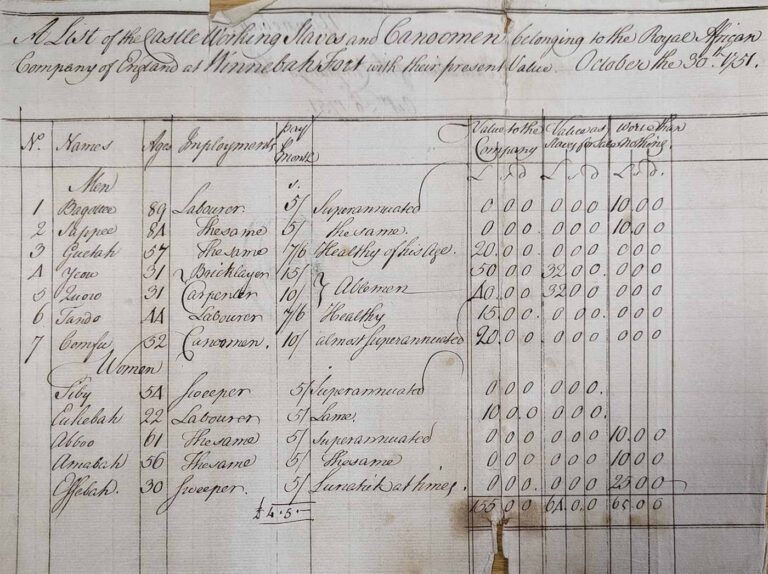 A List of the Castle Working Slaves and Canoemen belonging to the Royal African
Company of England at Winnebah Fort with their present Value October the 30th 1751.
No. Names Ages Employments pay ⅌ month Value to the Company Value as Slaves for Sale worse than nothing.
£ s d £ s d £ s d.
Men s.
1 89 Labourer 5/ Superannuated 0 0 0 0 0 0 10.0 0
2 Sappee 84 The same 5/ the same. 0 0 0 0 0 0 10.0 0
3 Guetah 57 The same 7/6 Healthy of his Age. 20.0 0 0 0 0 0 0 0
4 Ycow 31 Bricklayer 15/ } Ablemen 50 0 0 32 0 0 0 0 0
5 Quow 31 Carpenter 10/ 40.0 0 32 0 0 0 0 0
6 Tando 44 Labourer 7/6 Healthy 15.0 0 0 0 0 0 0 0
7 Comfu 52 Canoemen. 10/ almost Superannuated 20 0 0 0 0 0 0 0 0
Women
Siby 54 Sweeper 5/ Superannuated 0 0 0 0 0 0.
Eukebah 22 Labourer 5/ Lame. 10 0.0 0 0 0.
Abboo 61 The same 5/ Superannuated 0 0 0 0 0 0 10.0 0
Amabah 56 The same 5/ The same 0 0 0 0 0 0 10.0 0
Effebah. 30 Sweeper. 5/ Lunatick at times. 0 0 0 0 0 0 25.0 0
£4.5.- 155 0 0 64.0 0 65.0 0